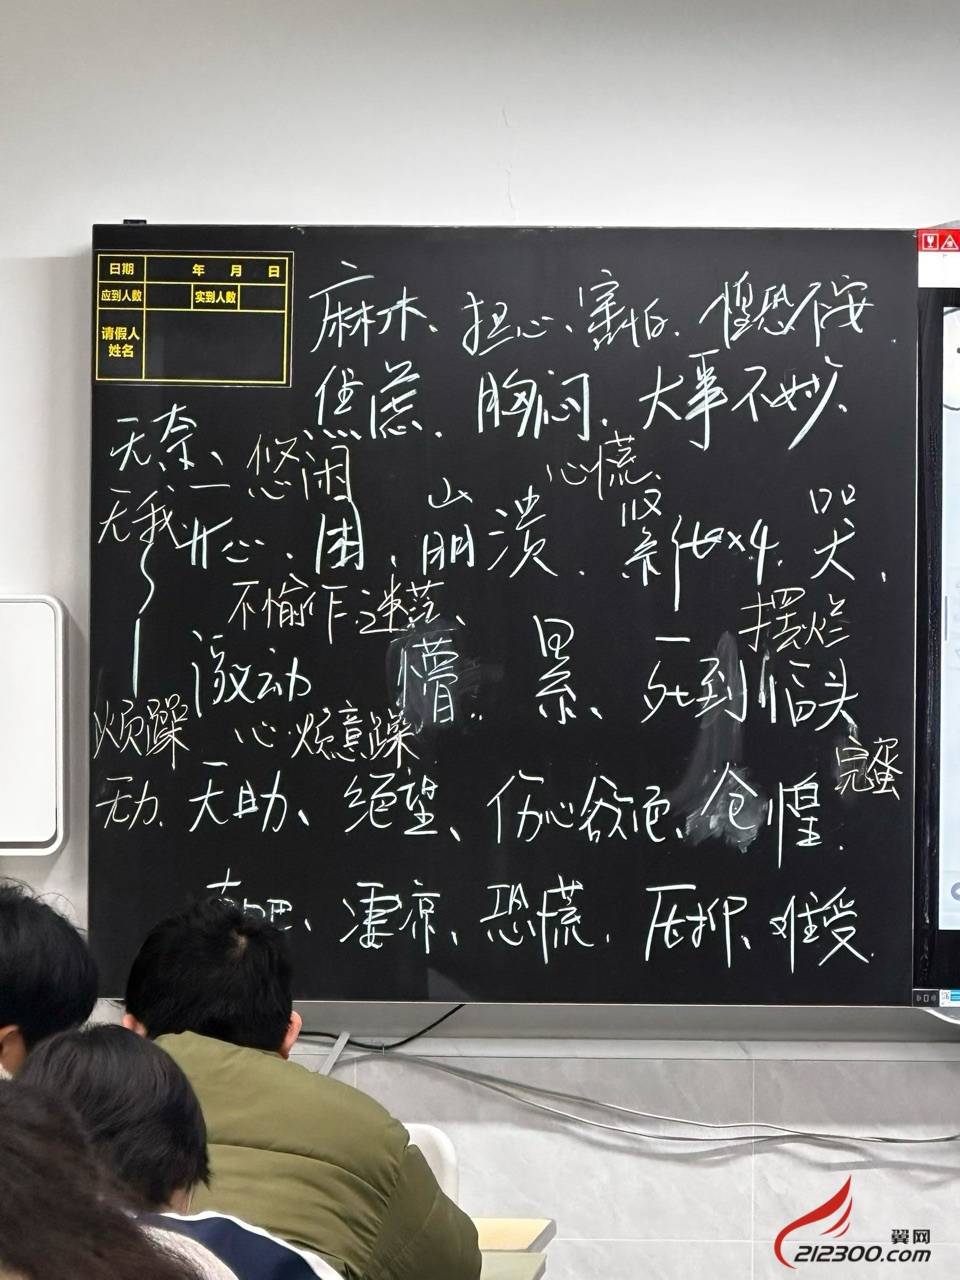 日期 年 月 日
应到人数 实到人数
请假人
姓名
麻木、担心、害怕、惶恐不安
焦虑、胸闷、大事不妙、
无奈、悠闲 心慌、
无我 开心、困、崩溃、紧张×4、哭、
不愉快、迷茫、 摆烂
激动 懵、累、死到临头
烦躁 心烦意躁 完蛋
无力、无助、绝望、伤心欲绝、仓惶、
凄凉、恐慌、压抑、难受、
翼网
212300.com